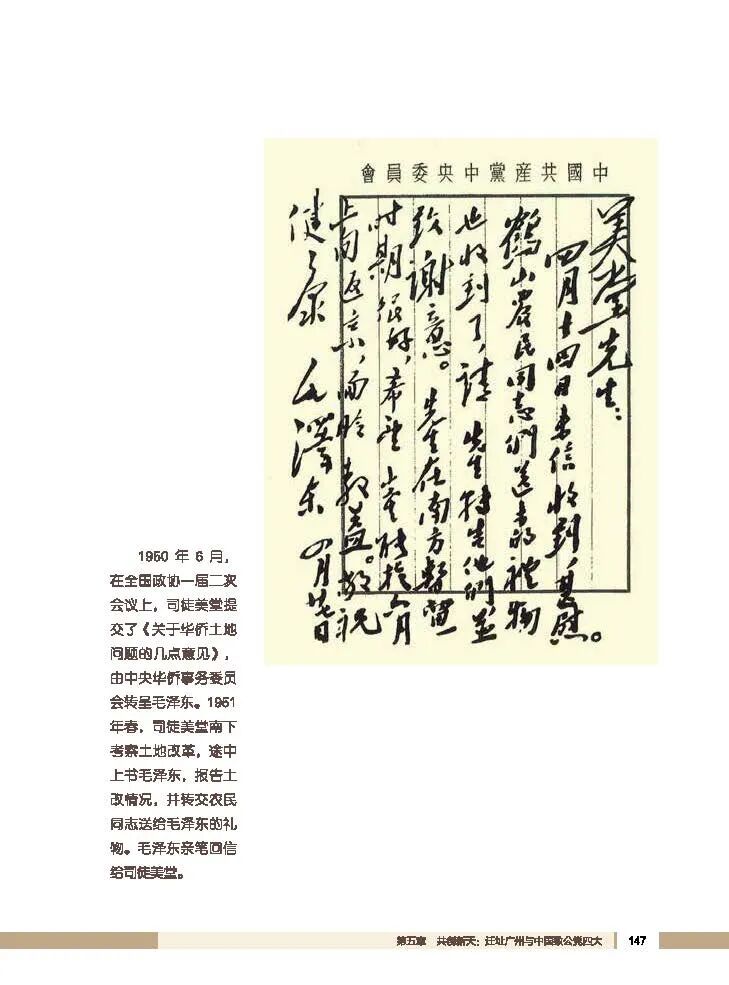 中國共産黨中央委員會
美堂先生：
四月十四日来信收到，甚慰。
鶴山農民同志們送来的禮物
也收到了，請 先生轉告他們並
致謝意。先生在南方暫留一
时期很好，希望 能於六月
上旬返京，面聆教益。敬祝
健康 毛澤东 四月廿七日
1950 年 6 月，
在全国政协一届二次
会议上，司徒美堂提
交了《关于华侨土地
问题的几点意见》，
由中央华侨事务委员
会转呈毛泽东。1951
年春，司徒美堂南下
考察土地改革，途中
上书毛泽东，报告土
改情况，并转交农民
同志送给毛泽东的礼
物。毛泽东亲笔回信
给司徒美堂。
第五章 共创新天：迁址广州与中国致公党四大 147